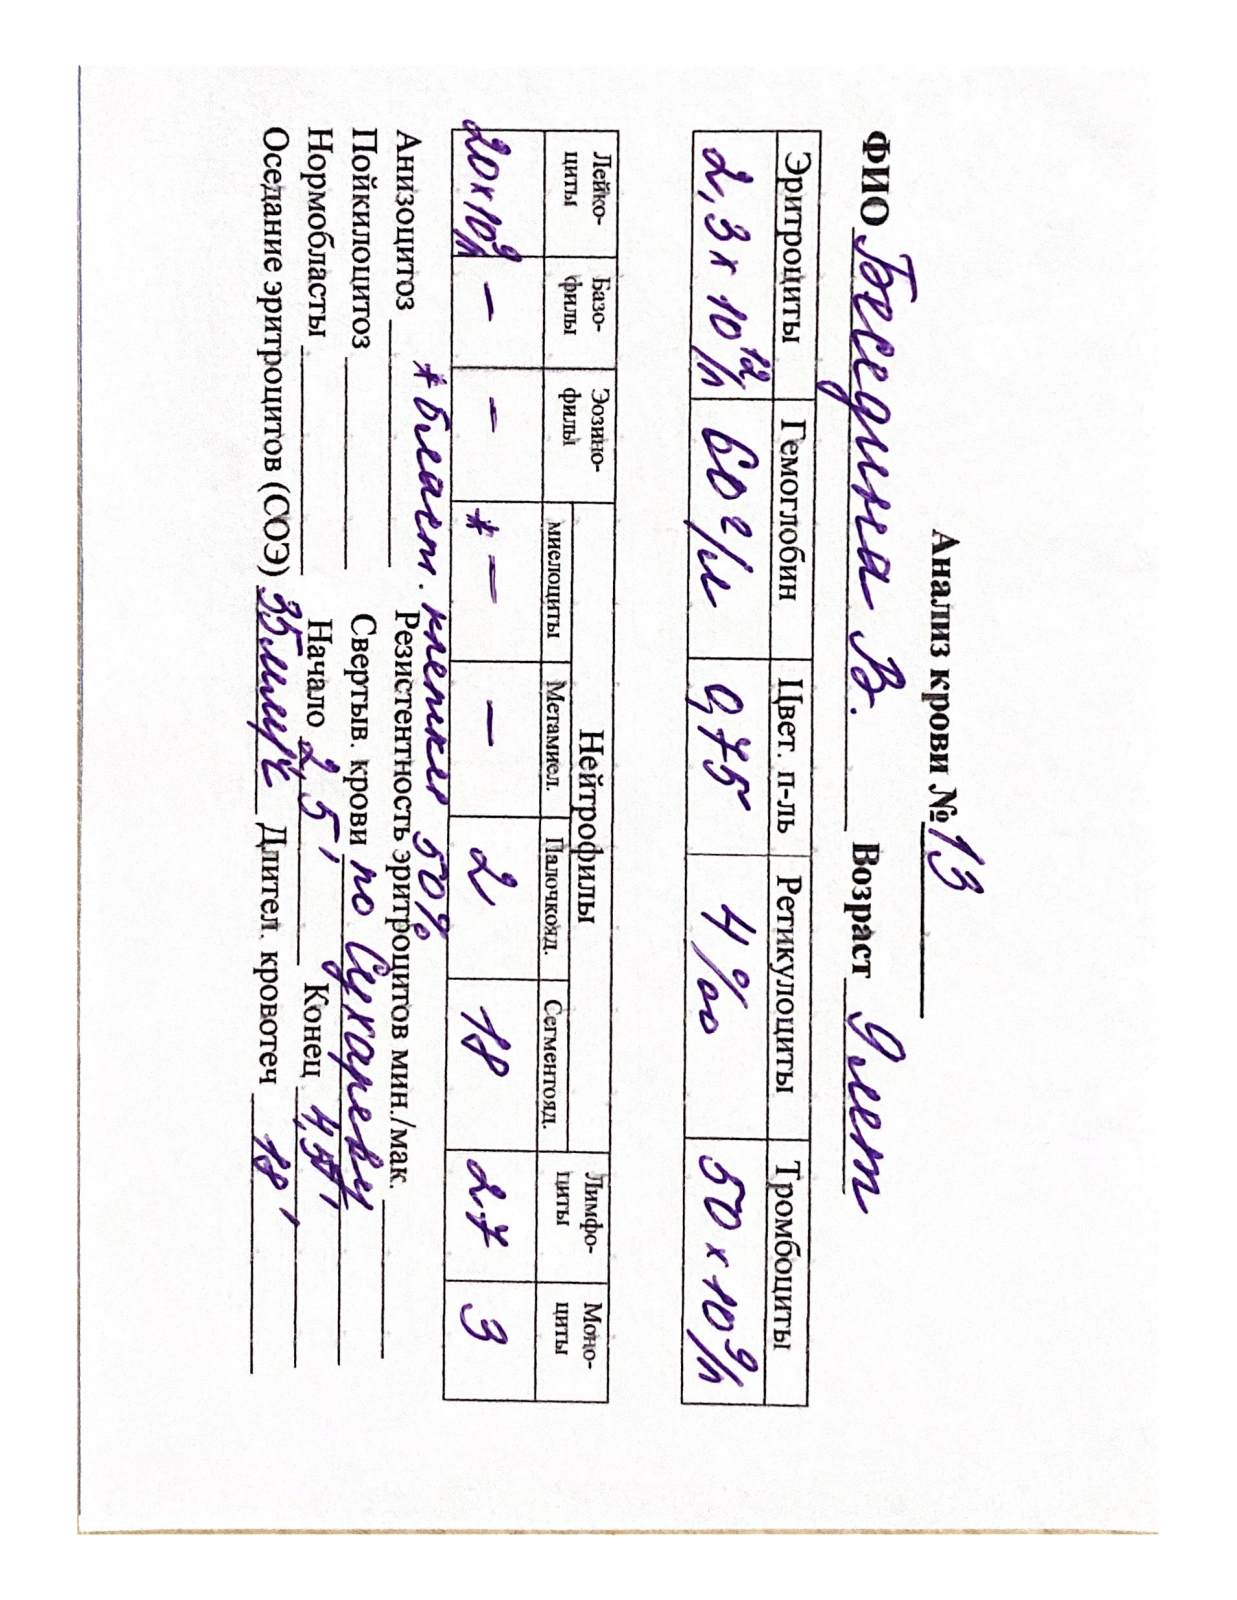 Анализ крови № 13
ФИО Беседина В. Возраст 9 лет
Эритроциты Гемоглобин Цвет. п-ль Ретикулоциты Тромбоциты
2,3 х 10¹²/л 60 г/л 0,75 4‰ 50 х 10⁹/л
Лейко- Базо- Эозино- Нейтрофилы Лимфо- Моно-
циты филы филы миелоциты Метамиел. Палочкояд. Сегментояд. циты циты
20 х 10⁹/л – – * – – 2 18 27 3
* бласт. клетки 50%
Анизоцитоз Резистентность эритроцитов мин./мак.
Пойкилоцитоз Свертыв. крови по Сухареву
Нормобласты Начало 2,5' Конец 4,5'
Оседание эритроцитов (СОЭ) 35 мм/ч Длител. кровотеч 18'